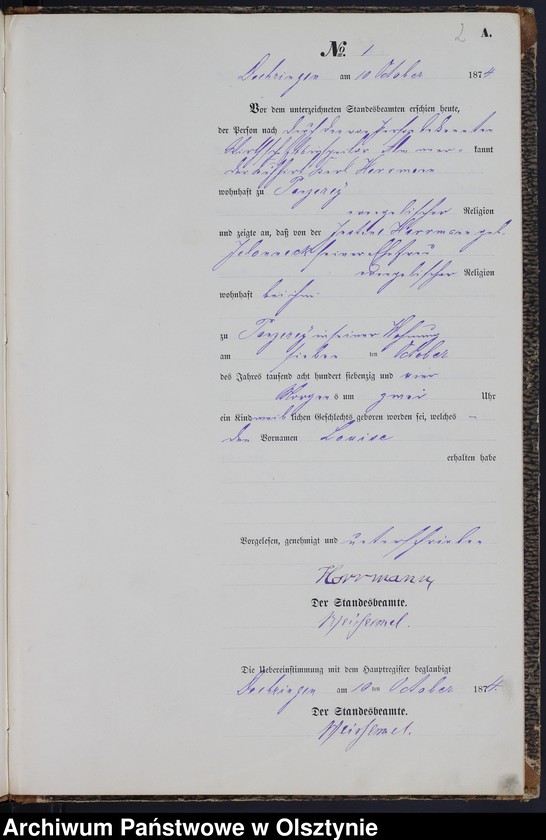 2
A.
No. 1
Doehringen am 10 October 1874
Vor dem unterzeichneten Standesbeamten erschien heute,
der Person nach durch den von Person bekannten
kannt
der Käthner Karl Herrmann
wohnhaft zu
evangelischer Religion
und zeigte an, daß von der Justine Herrmann geb.
seiner Ehefrau
evangelischer Religion
wohnhaft bei ihm
zu in seiner Wohnung
am sieben ten October
des Jahres tausend acht hundert siebenzig und vier
Morgens um zwei Uhr
ein Kind weib lichen Geschlechts geboren worden sei, welches –
den Vornamen Louise
erhalten habe
Vorgelesen, genehmigt und unterschrieben
Herrmann
Der Standesbeamte.
Die Uebereinstimmung mit dem Hauptregister beglaubigt
Doehringen am 10 ten October 1874.
Der Standesbeamte.
Archiwum Państwowe w Olsztynie